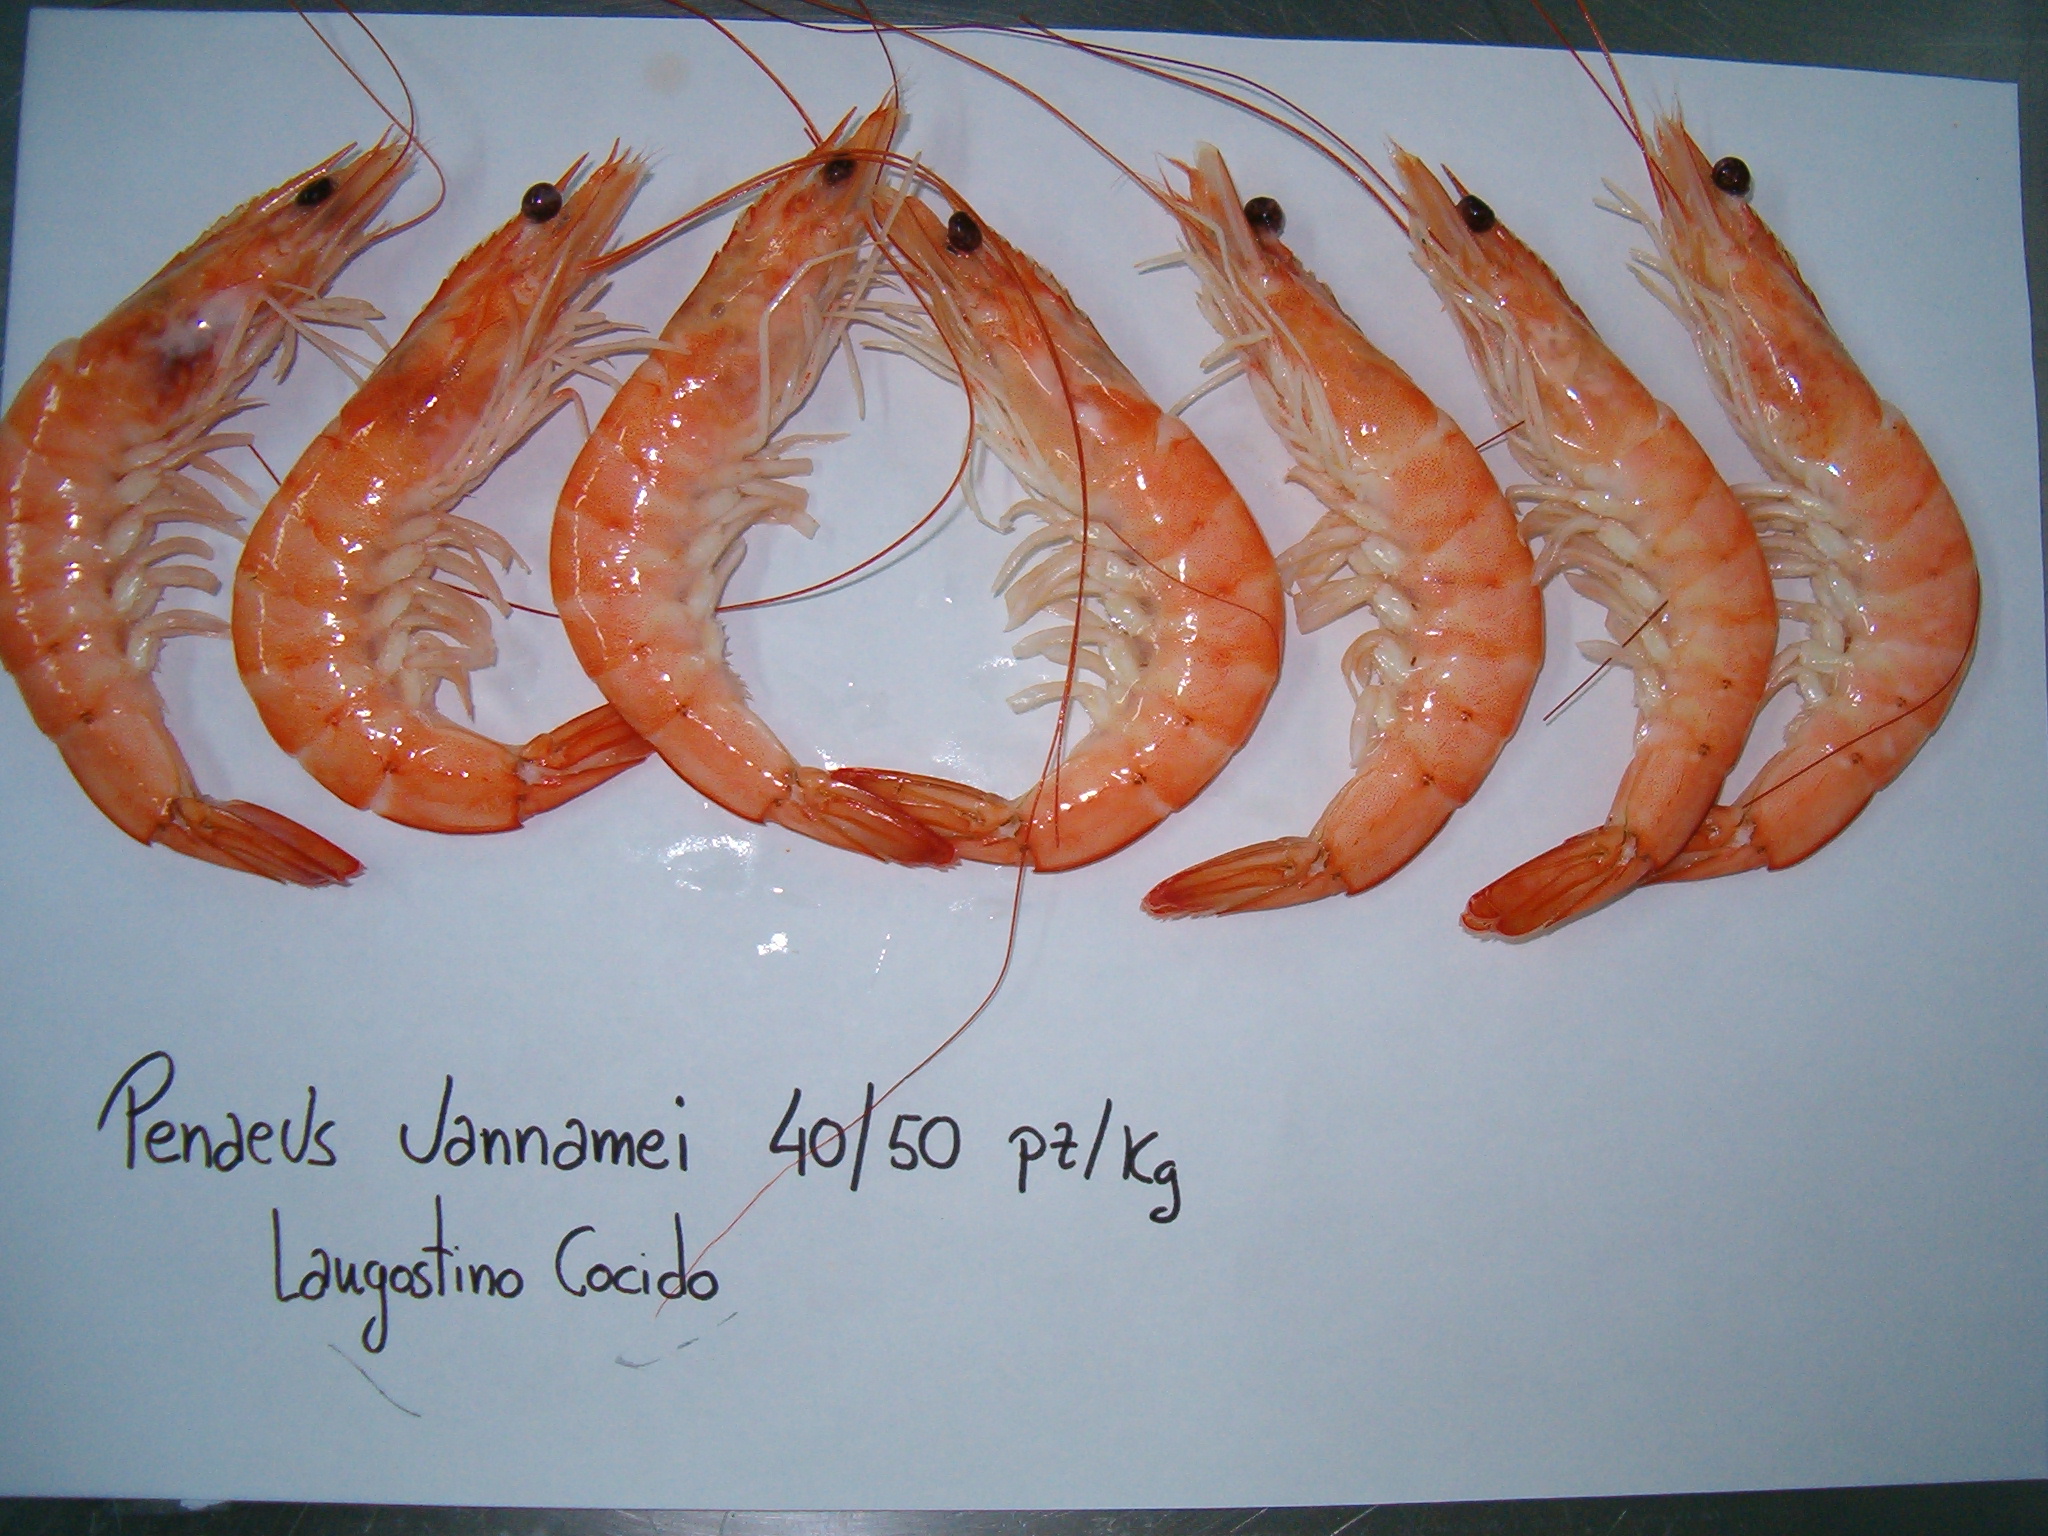 Penaeus Vannamei 40/50 pz/Kg
Langostino Cocido